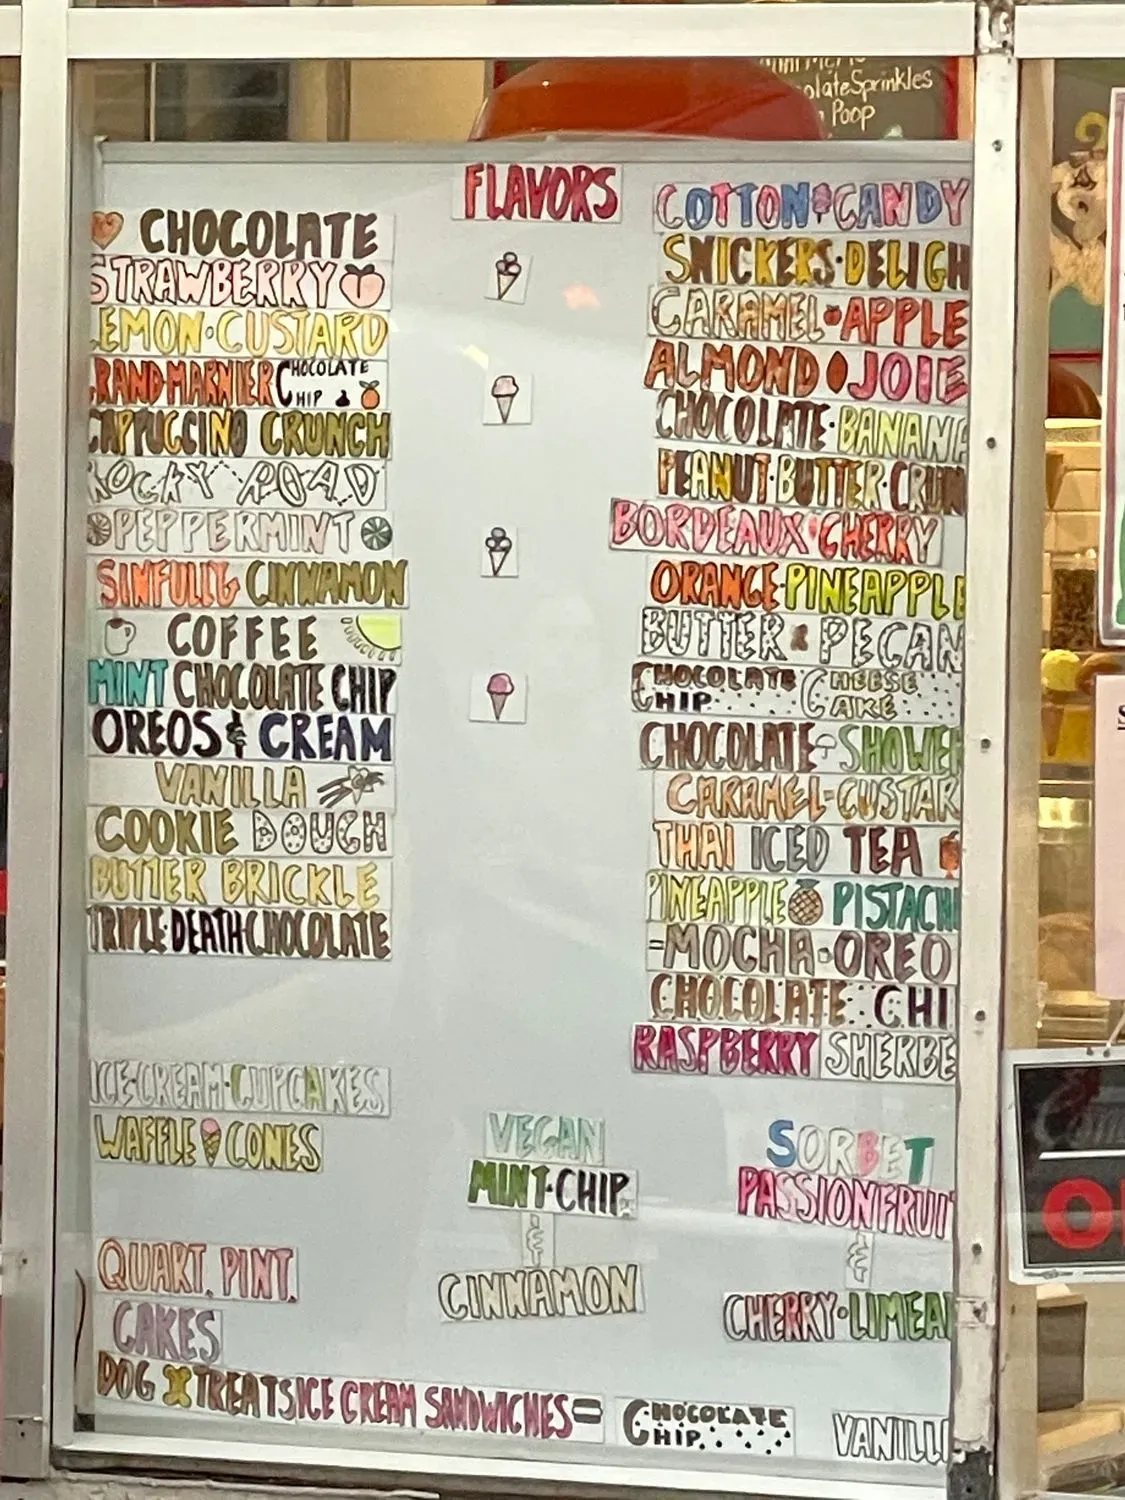 FLAVORS
CHOCOLATE
STRAWBERRY
LEMON·CUSTARD
RAND·MARNIER CHOCOLATE CHIP
CAPPUCCINO CRUNCH
ROCKY ROAD
PEPPERMINT
SINFULLY CINNAMON
COFFEE
MINT CHOCOLATE CHIP
OREOS & CREAM
VANILLA
COOKIE DOUGH
BUTTER BRICKLE
TRIPLE·DEATH·CHOCOLATE
ICE·CREAM·CUPCAKES
WAFFLE CONES
QUART. PINT.
CAKES
DOG TREATS ICE CREAM SANDWICHES= CHOCOLATE CHIP VANILL
COTTON CANDY
SNICKERS·DELIGH
CARAMEL APPLE
ALMOND JOIE
CHOCOLATE·BANANA
PEANUT·BUTTER·CRUN
BORDEAUX CHERRY
ORANGE·PINEAPPLE
BUTTER PECAN
CHOCOLATE CHIP CHEESE CAKE
CHOCOLATE SHOWER
CARAMEL-CUSTAR
THAI ICED TEA
PINEAPPLE PISTACHI
=MOCHA·OREO
CHOCOLATE CHI
RASPBERRY SHERBE
VEGAN
MINT·CHIP
&
CINNAMON
SORBET
PASSIONFRUIT
&
CHERRY·LIMEA
olate Sprinkles
Poop